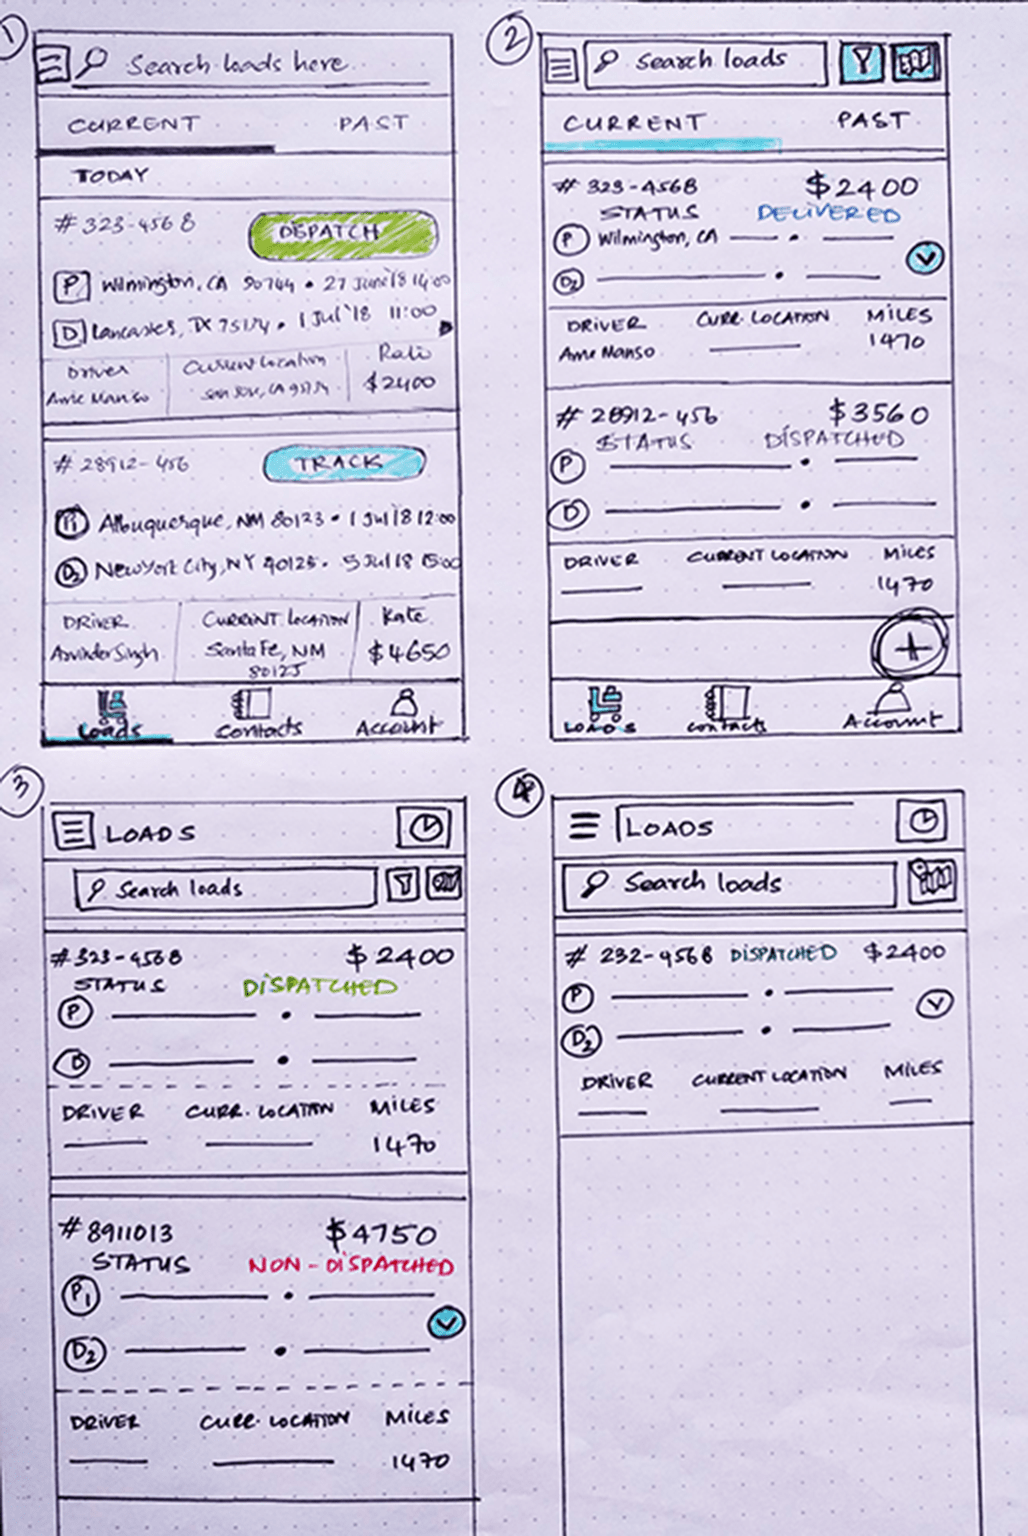 1
Search loads here
CURRENT PAST
TODAY
# 323-4568 DISPATCH
P Wilmington, CA 90744 • 27 June'18 14:00
D Lancaster, TX 75134 • 1 Jul'18 11:00
Driver Current Location Rate
Arne Manso San Jose, CA $2400
# 28912-456 TRACK
P1 Albuquerque, NM 80123 • 1 Jul 18 12:00
D2 New York City, NY 40125 • 5 Jul 18 15:00
DRIVER CURRENT LOCATION Rate
Arvinder Singh Santa Fe, NM $4650
80125
Loads Contacts Account
2
Search loads
CURRENT PAST
# 323-4568 $2400
STATUS DELIVERED
P Wilmington, CA
D2
DRIVER CURR. LOCATION MILES
Arne Manso 1470
# 28912-456 $3560
STATUS DISPATCHED
P
D
DRIVER CURRENT LOCATION MILES
1470
+
LOADS Contacts Account
3
LOADS
Search loads
#323-4568 $2400
STATUS DISPATCHED
P
D
DRIVER CURR. LOCATION MILES
1470
#8911013 $4750
STATUS NON-DISPATCHED
P1
D2
DRIVER CURR. LOCATION MILES
1470
4
LOADS
Search loads
# 232-4568 DISPATCHED $2400
P
D2
DRIVER CURRENT LOCATION MILES